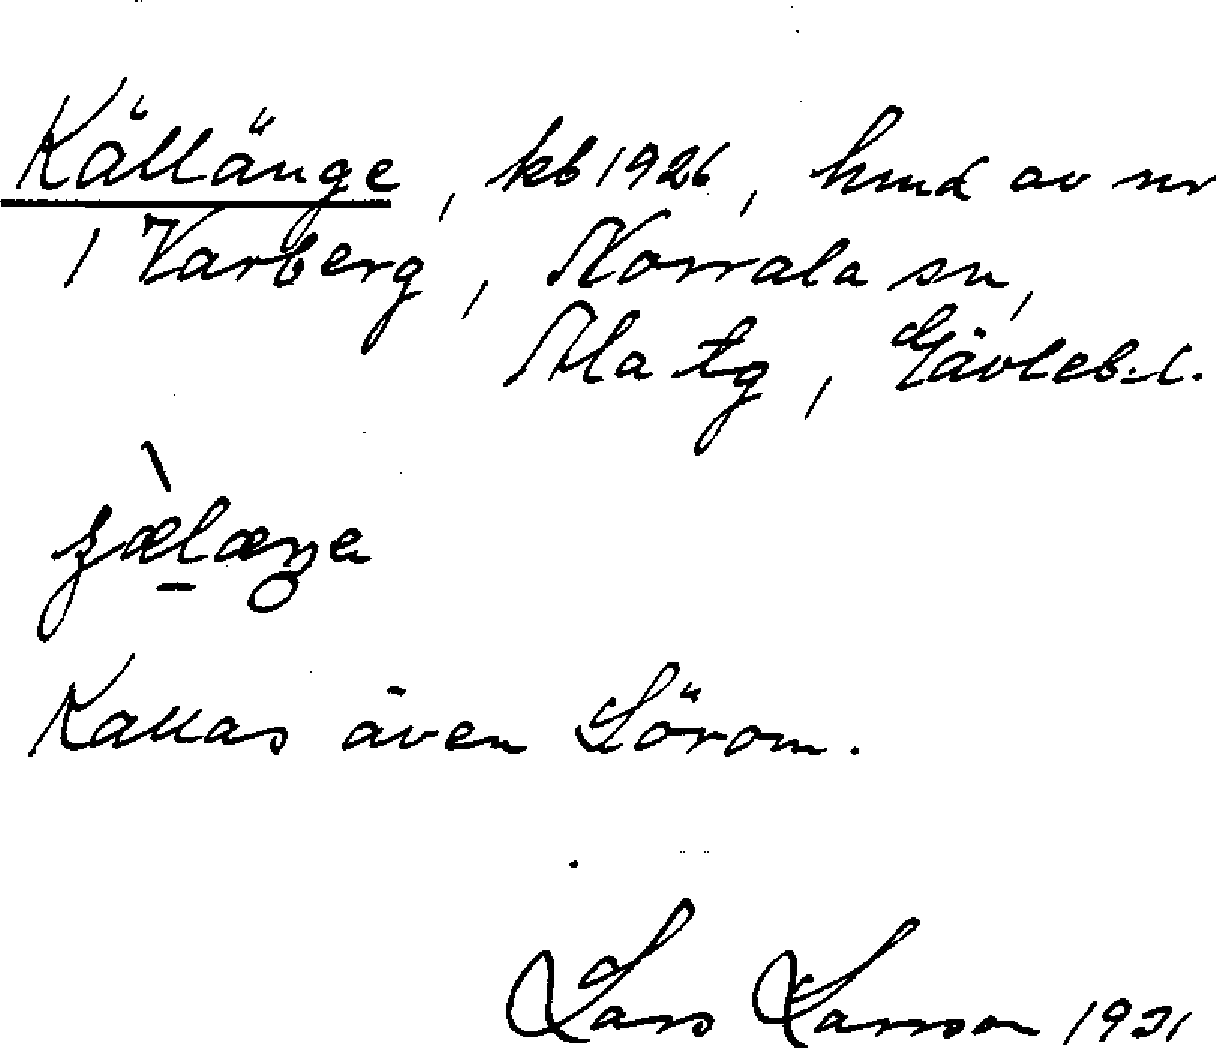 Källänge, kb 1926, hmd av nr
1 Varberg, Norrala sn,
Ala tg, Gävleb. l.
Kallas även Sörom.
Lars Larsson 1931